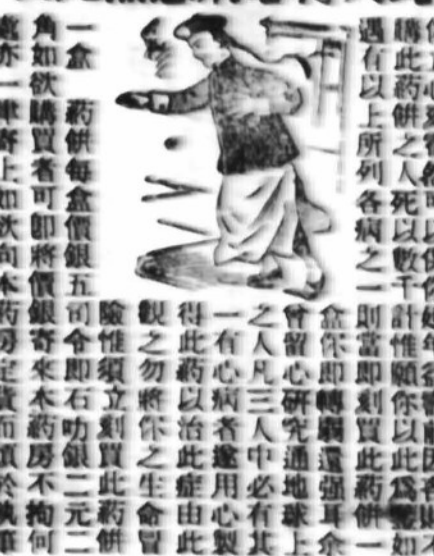 購此藥餅之人死以數千計惟願你以此為鑒如
遇有以上所列各病之一則當即刻買此藥餅一
盒你即轉弱還强耳 介
曾留心研究通地球上
之人凡三人中必有其
一有心病者遂用心製
得此葯以治此症由此
觀之勿將你之生命冒
險惟須立刻買此葯餅
一盒 葯餅每盒價銀五司令即石叻銀二元二
角如欲購買者可即將價銀寄來本葯房不拘何
處亦一律寄上如欲向本葯房定貨而須於